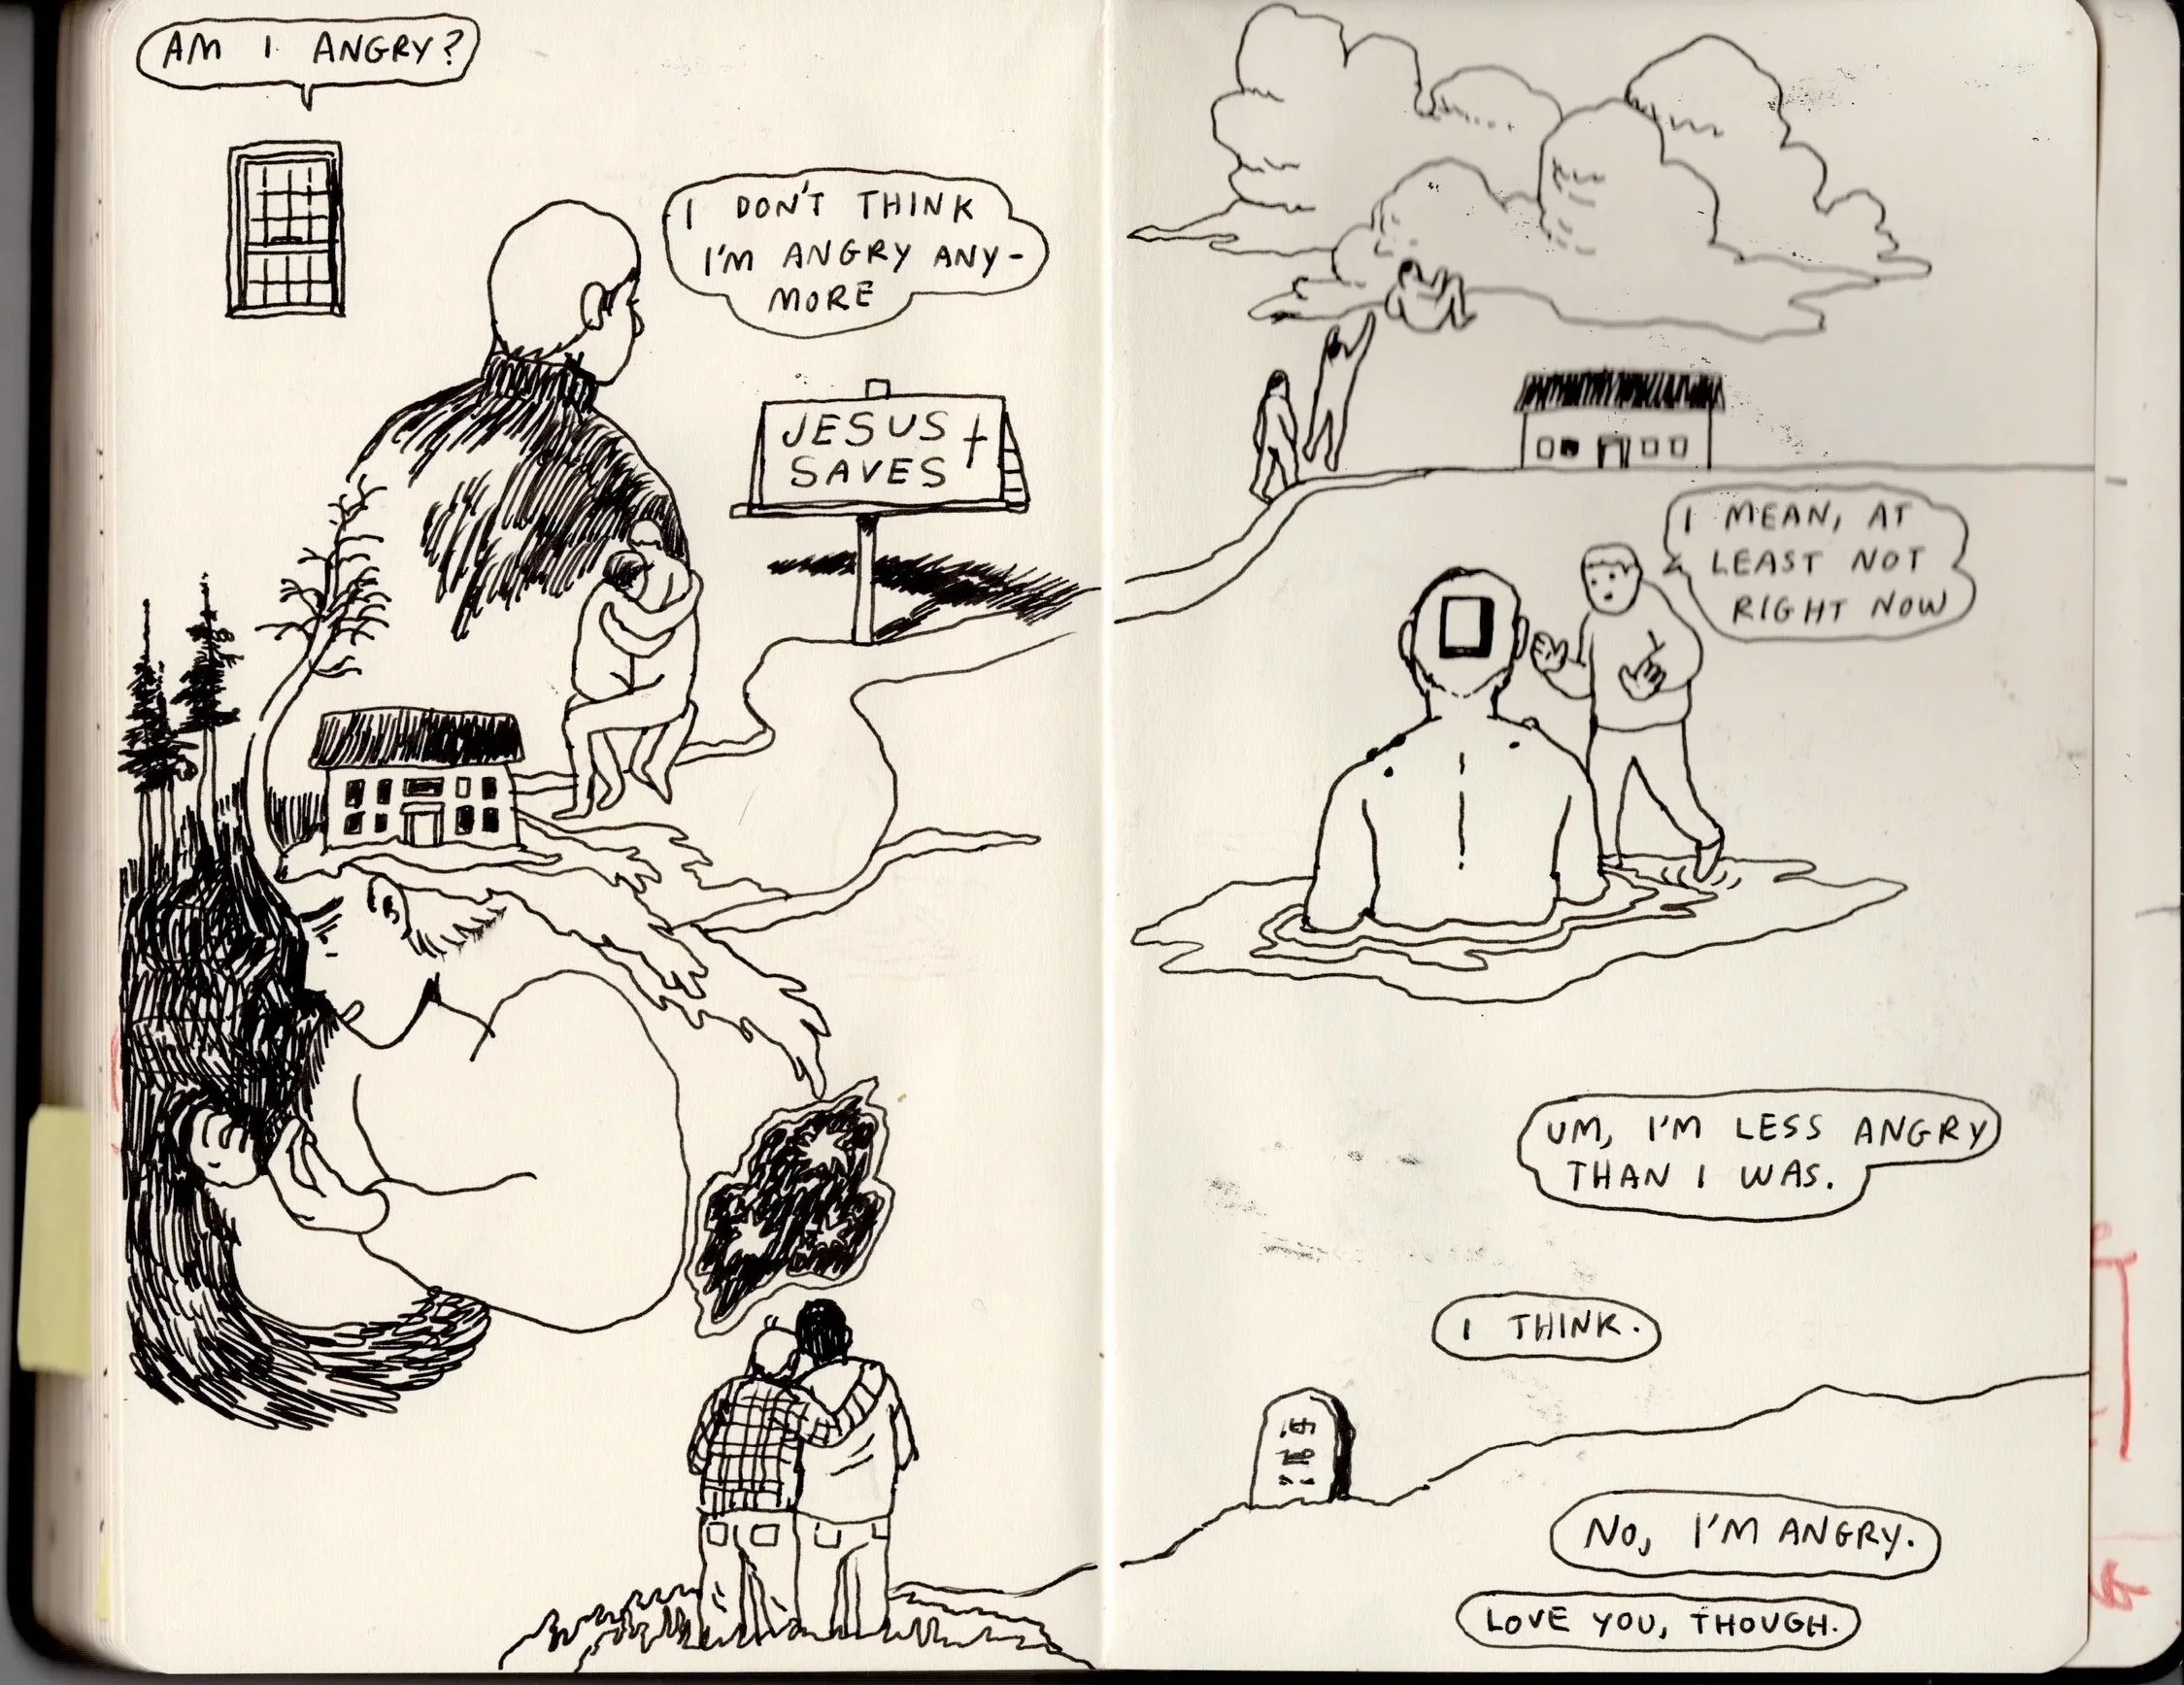 AM I ANGRY?
I DON'T THINK
I'M ANGRY ANY-
MORE
JESUS
SAVES
I MEAN, AT
LEAST NOT
RIGHT NOW
UM, I'M LESS ANGRY
THAN I WAS.
I THINK.
NO, I'M ANGRY.
LOVE YOU, THOUGH.